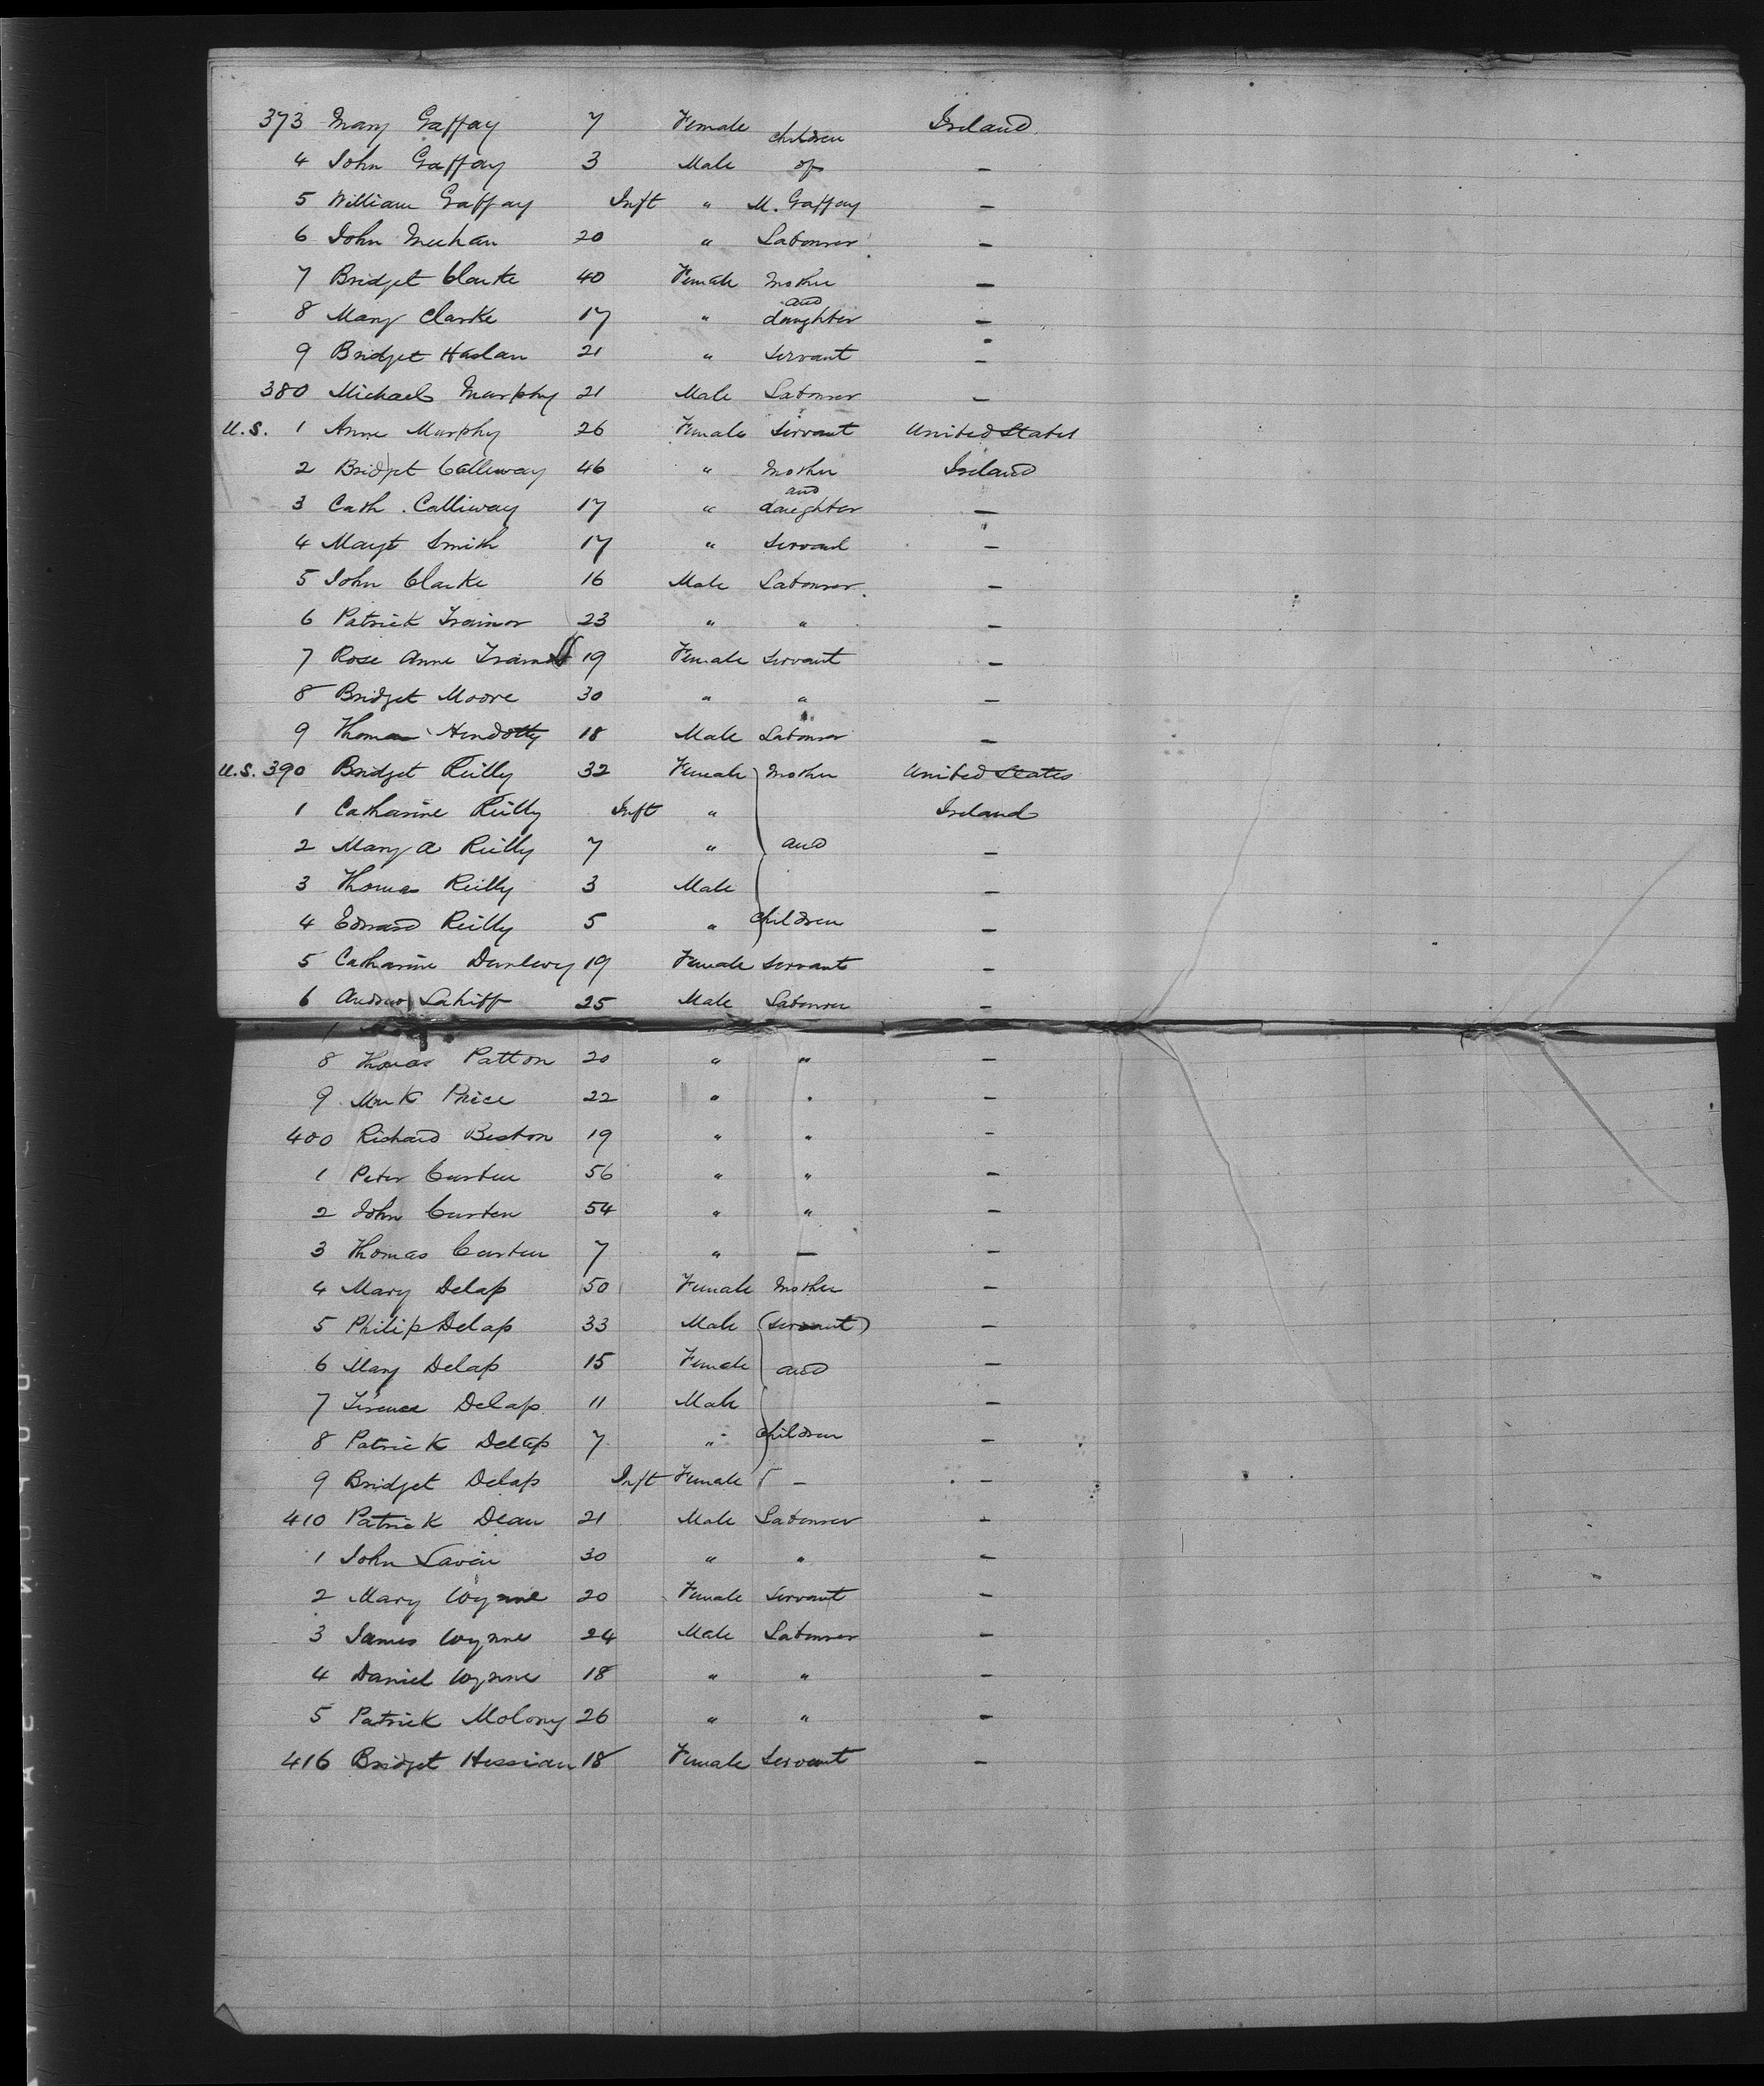 373 Mary Gaffay 7 Female children Ireland
4 John Gaffay 3 Male of —
5 William Gaffay Inft " M. Gaffay —
6 John Meehan 20 " Labourer —
7 Bridget Clarke 40 Female Mother —
and
8 Mary Clarke 17 " daughter —
9 Bridget Haslan 21 " Servant —
380 Michael Murphy 21 Male Labourer —
U.S. 1 Anne Murphy 26 Female Servant United States
2 Bridget Calliway 46 " Mother Ireland
and
3 Cath. Calliway 17 " daughter —
4 Mayt Smith 17 " Servant —
5 John Clarke 16 Male Labourer. —
6 Patrick Trainor 23 " " —
7 Rose Anne Trainor 19 Female Servant —
8 Bridget Moore 30 " " —
9 Thomas 18 Male Labourer —
U.S. 390 Bridget Reilly 32 Female Mother United States
1 Catharine Reilly Inft " Ireland
2 Mary A Reilly 7 " and —
3 Thomas Reilly 3 Male —
4 Edward Reilly 5 " children —
5 Catharine Dunlevy 19 Female Servant —
6 Andrew Lahiff 25 Male Labourer —
8 Thomas Patton 20 " " —
9 Mark Price 22 " " —
400 Richard Beston 19 " " —
1 Peter Curten 56 " " —
2 John Curten 54 " " —
3 Thomas Curten 7 " — —
4 Mary Delap 50 Female Mother —
5 Philip Delap 33 Male (Servant) —
6 Mary Delap 15 Female and —
7 Terence Delap 11 Male —
8 Patrick Delap 7 " children —
9 Bridget Delap Inft Female — —
410 Patrick Dean 21 Male Labourer —
1 John Lavin 30 " " —
2 Mary Wynne 20 Female Servant —
3 James Wynne 24 Male Labourer —
4 Daniel Wynne 18 " " —
5 Patrick Molony 26 " " —
416 Bridget Hessian 18 Female Servant —